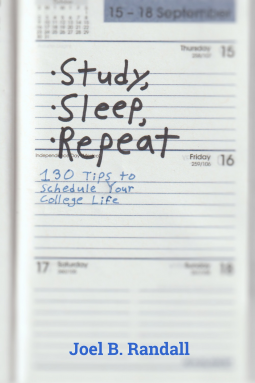 15 - 18 September
Thursday 15
·Study,
·Sleep,
·Repeat
Friday 16
130 Tips to
Schedule Your
College Life
17 Saturday
Sunday 18
Joel B. Randall